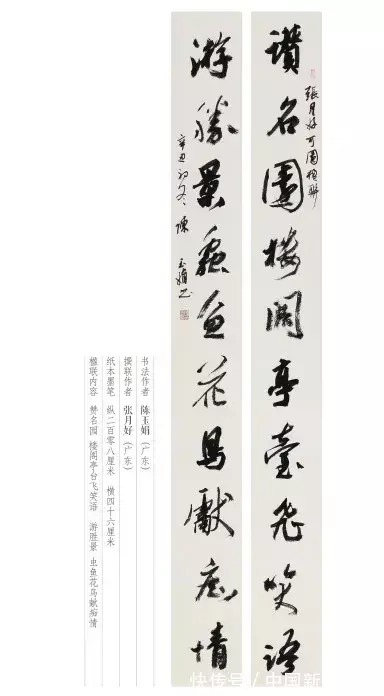 讚名園樓閣亭臺飛笑語
張月好可園楹聯
游勝景蟲魚花鳥獻痴情
辛丑初冬 陳玉娟书
书法作者 陈玉娟(广东)
撰联作者 张月好(广东)
纸本墨笔 纵二百零八厘米 横四十六厘米
楹联内容 赞名园 楼阁亭台飞笑语 游胜景 虫鱼花鸟献痴情
快传号/中国新